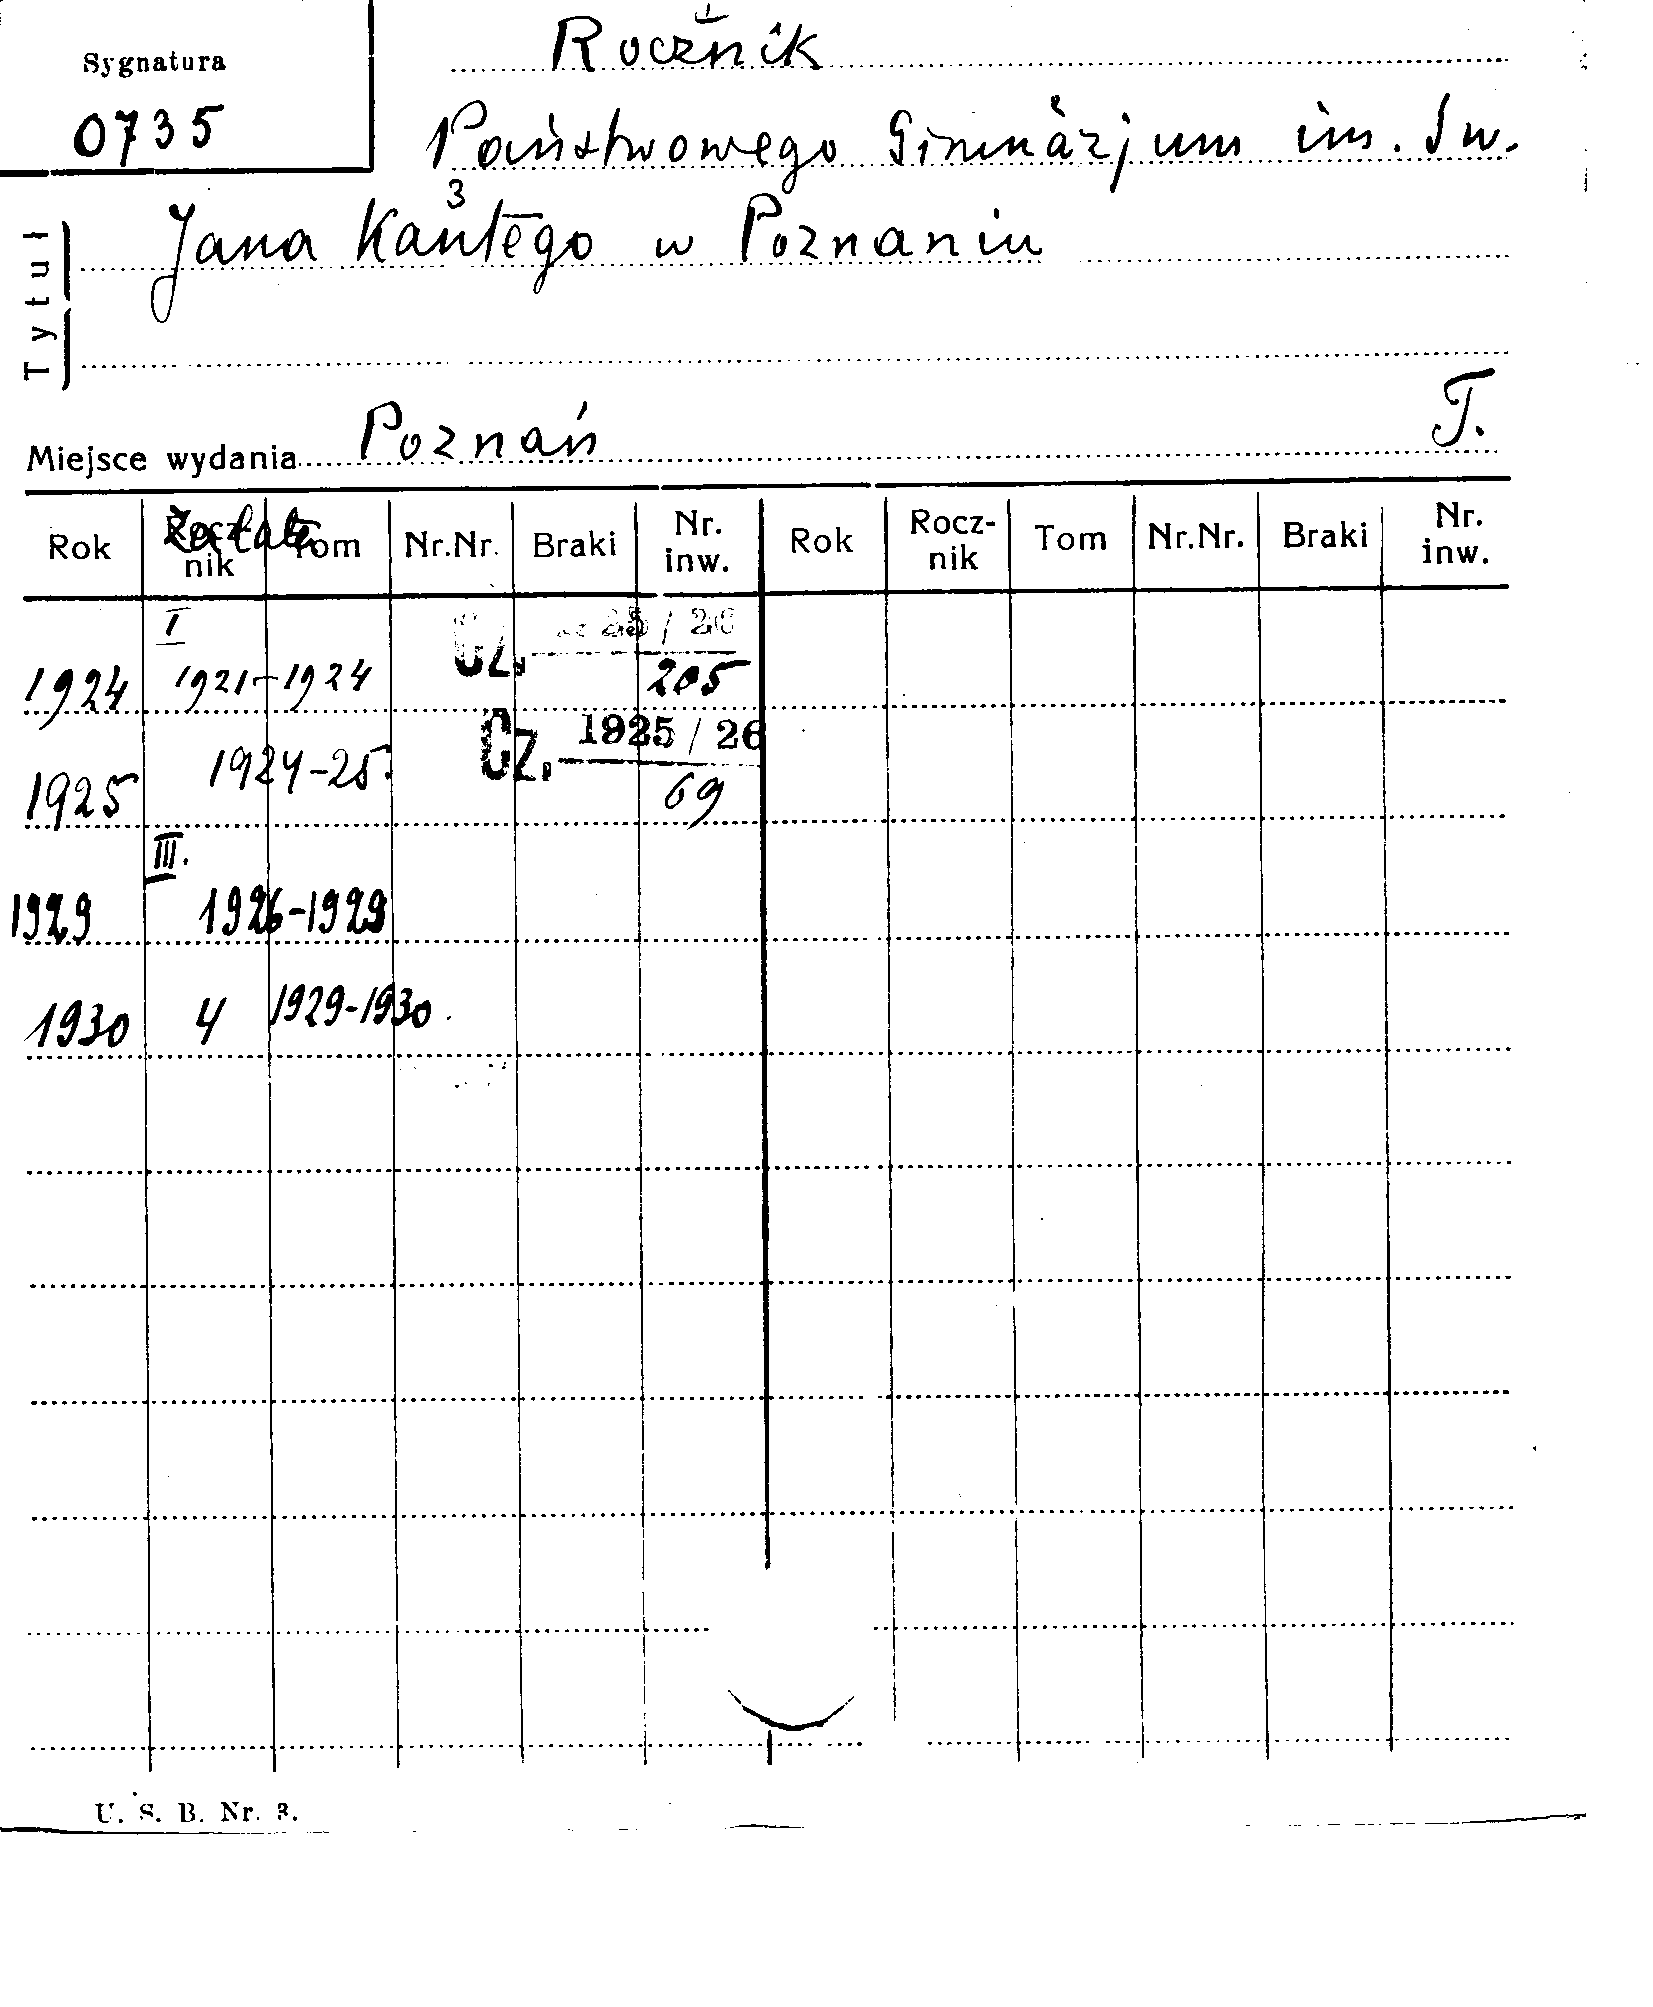 Sygnatura
0735
1
Rocznik
Państwowego Gimnazjum im. Św.
3
Jana Kantego w Poznaniu
Tytuł
T.
Miejsce wydania Poznań
Rok Rocz-nik Tom Nr.Nr. Braki Nr. inw. Rok Rocz-nik Tom Nr.Nr. Braki Nr. inw.
za lata
I
1924 1921-1924 Cz. 25/26 205
1925 1924-25. Cz. 1925/26 69
III.
1929 1926-1929
1930 4 1929-1930.
U. S. B. Nr. 3.